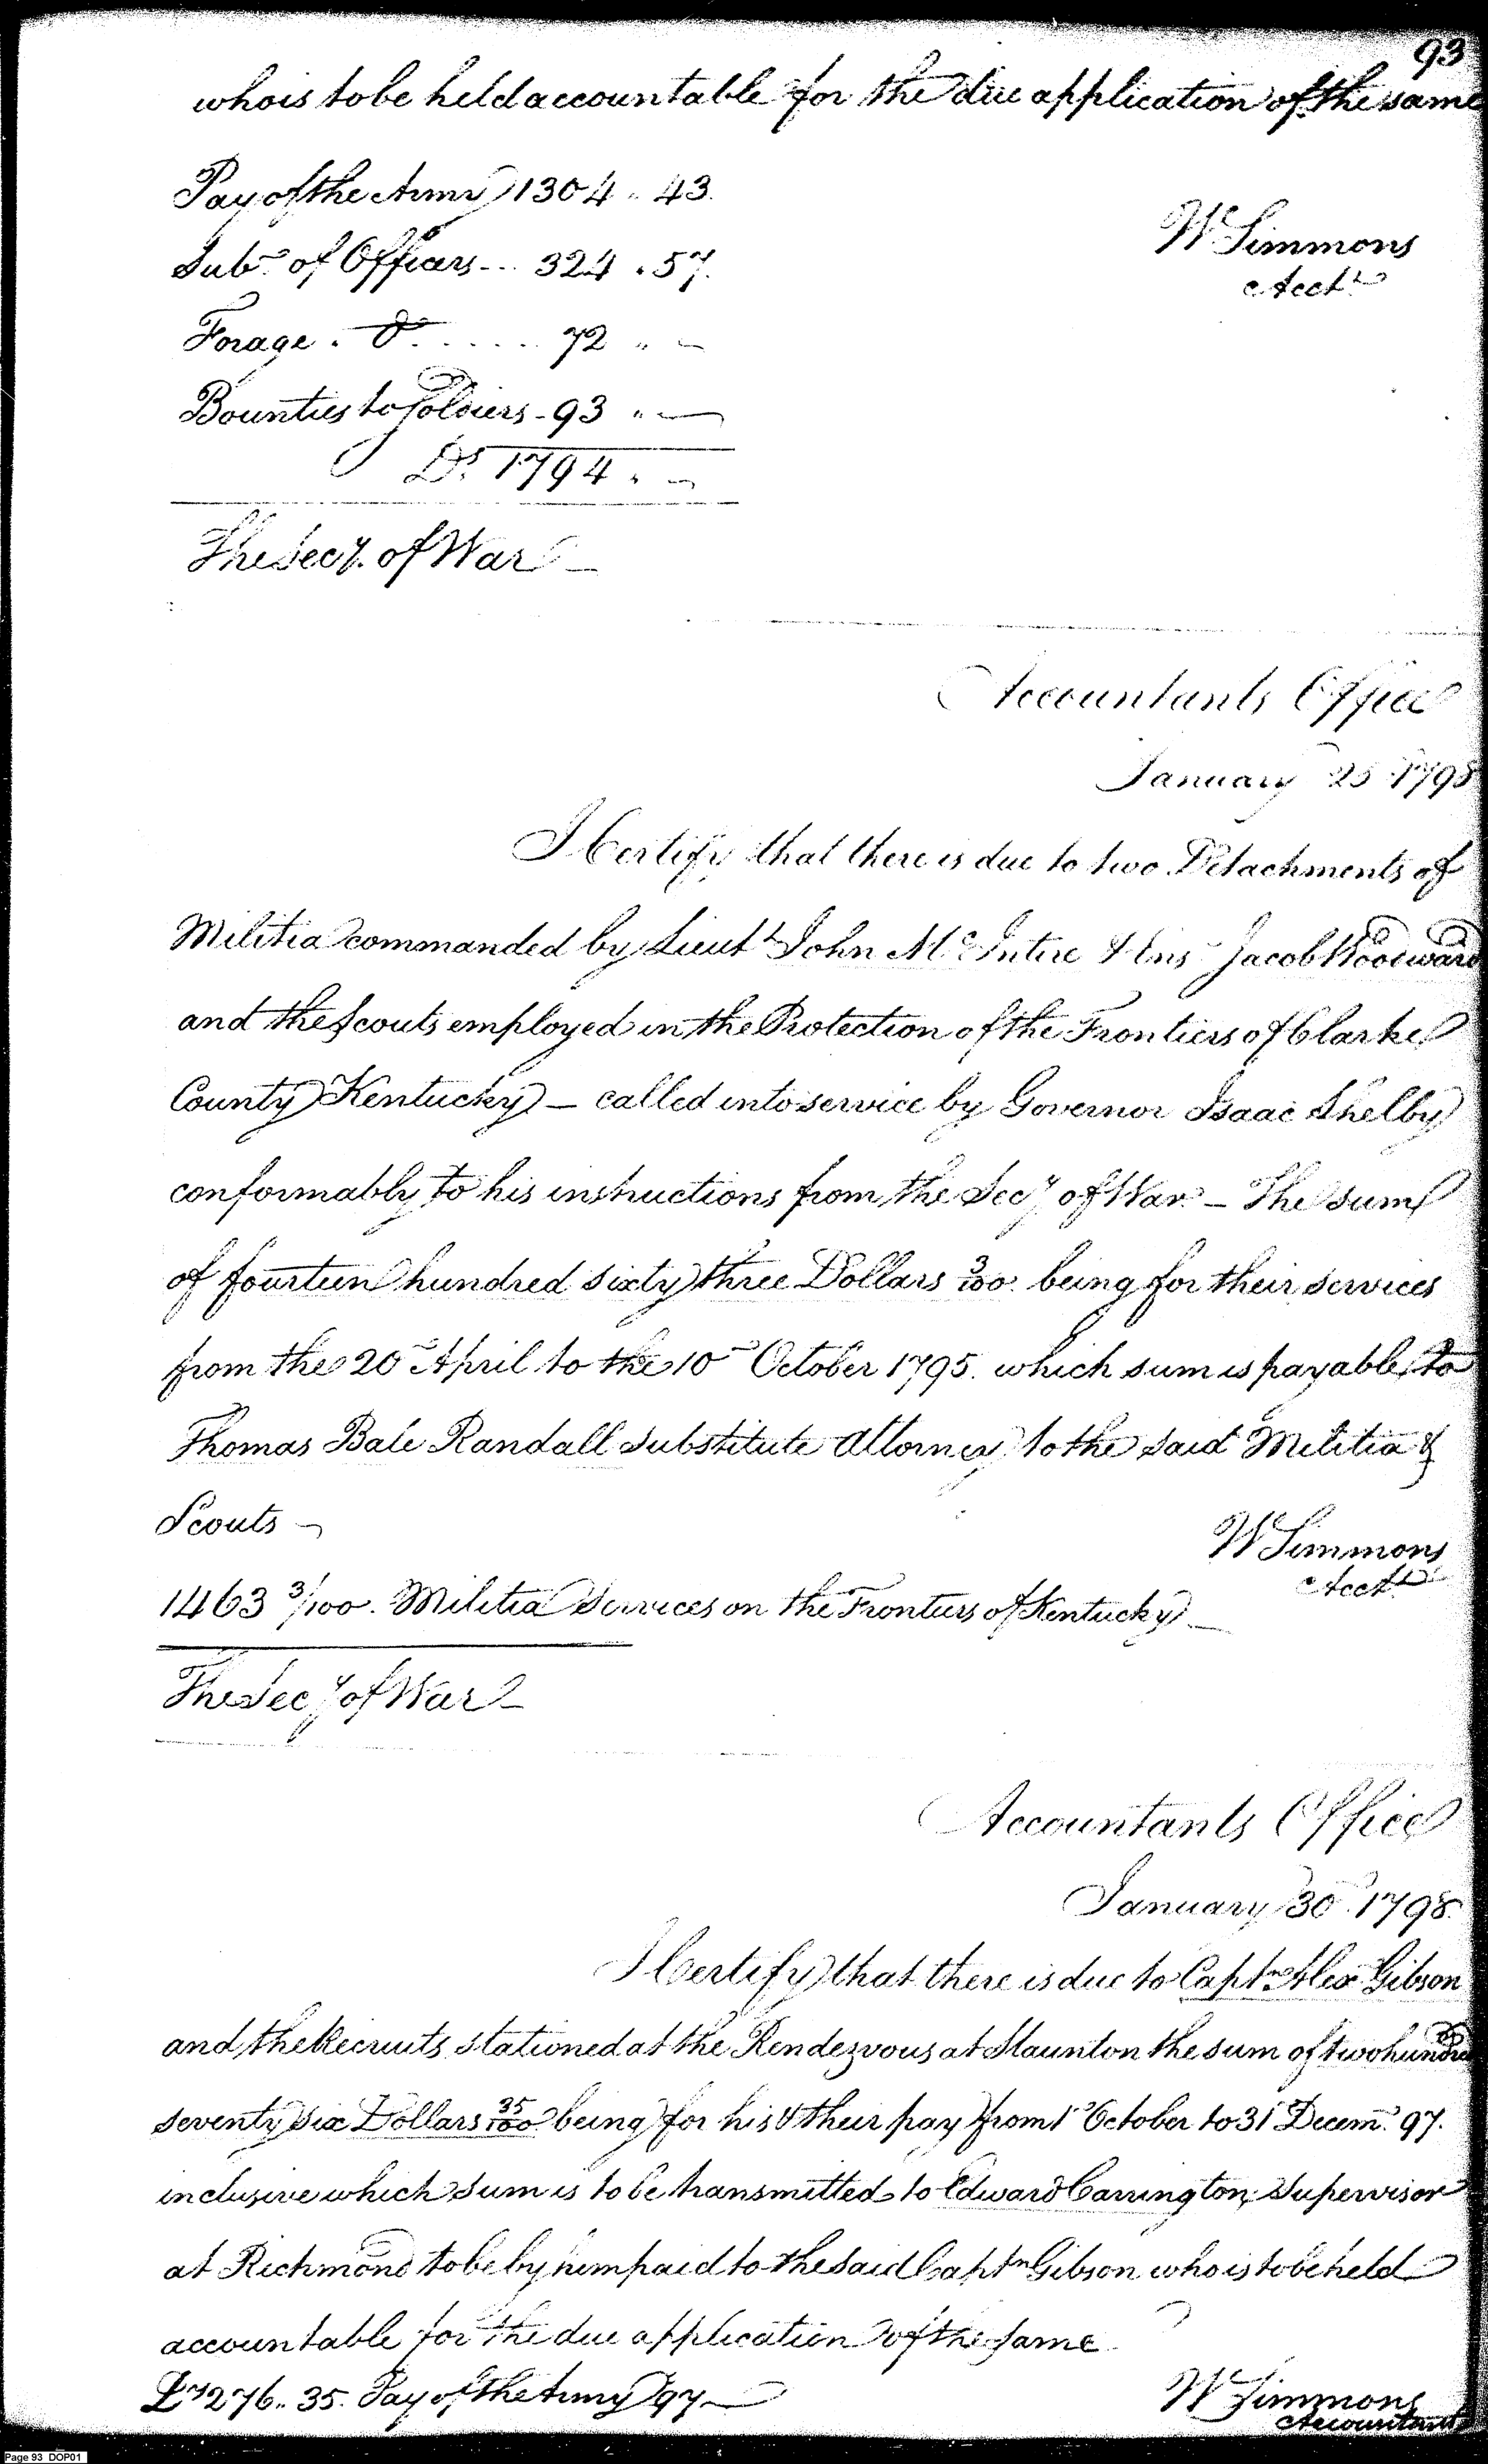 93
who is to be held accountable for the due application of the same
Pay of the Army 1304 .. 43.
W Simmons
Sub.e of Officers --- 324 . 57.
Acct.t
Forage . Do. ..... 72 " -
Bounties to Soldiers - 93 " -
Ds. 1794 . -
The Secy. of War -
Accountants Office
January 25 1798
I Certify that there is due to two Detachments of
Militia commanded by Lieut.t John Mc.Intire & Ens.n Jacob Woodward
and the Scouts employed in the Protection of the Frontiers of Clarke
County Kentucky - called into service by Governor Isaac Shelby
conformably to his instructions from the Secy of War - The sum
of fourteen hundred sixty three Dollars 3/100. being for their services
from the 20th April to the 10th October 1795. which sum is payable to
Thomas Bale Randall Substitute Attorney to the said Militia &
Scouts -
W Simmons
Acct.t
1463 3/100. Militia Services on the Frontiers of Kentucky -
The Secy of War -
Accountants Office
January 30 1798.
I Certify that there is due to Captn Alex Gibson
and the Recruits stationed at the Rendezvous at Staunton the sum of two hundred
seventy six Dollars 35/100 being for his & their pay from 1st October to 31 Decem.r 97.
inclusive which sum is to be transmitted to Edward Carrington, Supervisor
at Richmond to be by him paid to the said Captn Gibson who is to be held
accountable for the due application of the same
Ds 276.. 35. Pay of the Army 97 -
W Simmons
Accountant
Page 93 DOP01